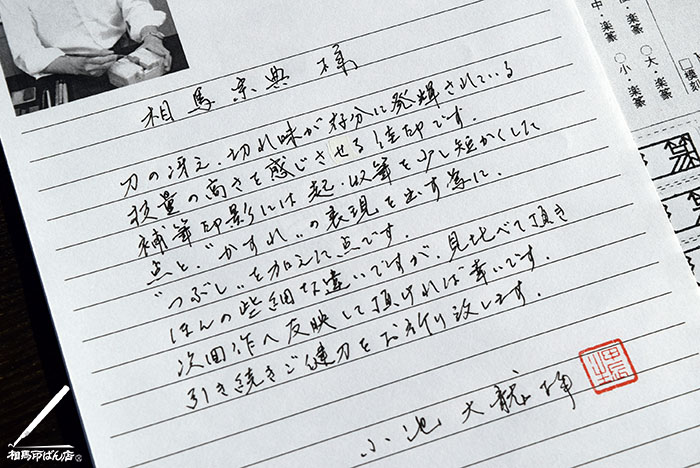 相馬宗典 様
刀の冴え、切れ味が存分に発揮されている
技量の高さを感じさせる佳印です。
補筆印影には起・収筆を少し短かくした
点と、"かすれ"の表現を出す為に、
"つぶし"を加えた点です。
ほんの些細な違いですが、見比べて頂き
次回作へ反映して頂ければ幸いです。
引き続きご健刀をお祈り致します。
小池大龍
中・楽篆
○小・楽篆
○大・楽篆
相馬印ばん店